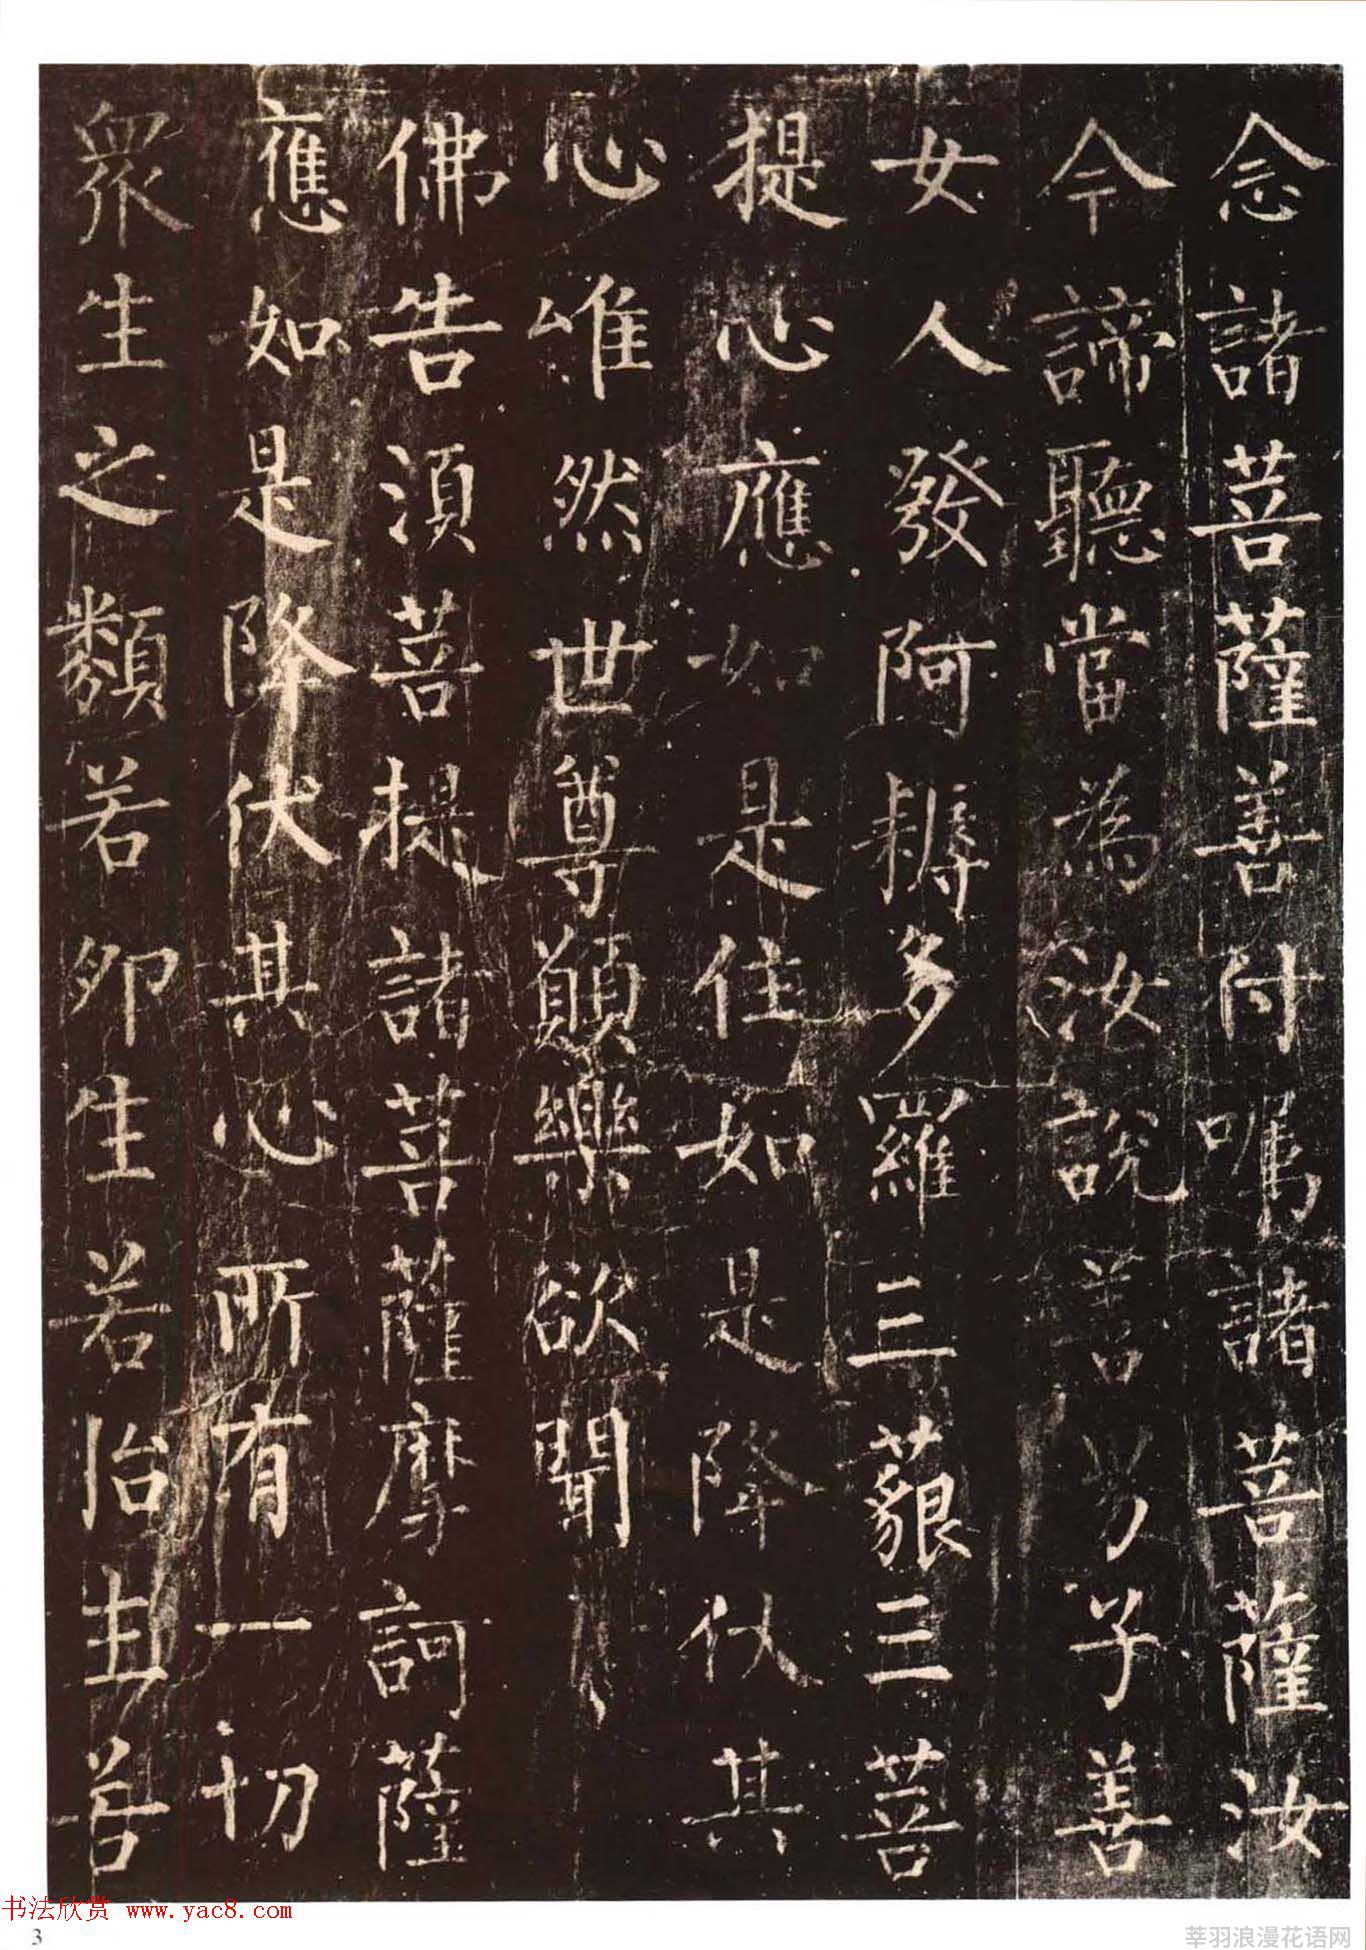 念諸菩薩善付嘱諸菩薩汝
今諦聽當為汝說善男子善
女人發阿耨多羅三藐三菩
提心應如是住如是降伏其
心唯然世尊願樂欲聞
佛告湏菩提諸菩薩摩訶薩
應如是降伏其心所有一切
眾生之類若卵生若胎生若
书法欣赏 www.yac8.com
3
莘羽浪漫花语网